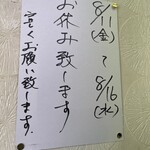 8/11(金)~8/16(水)
お休み致します
宜しくお願い致します。